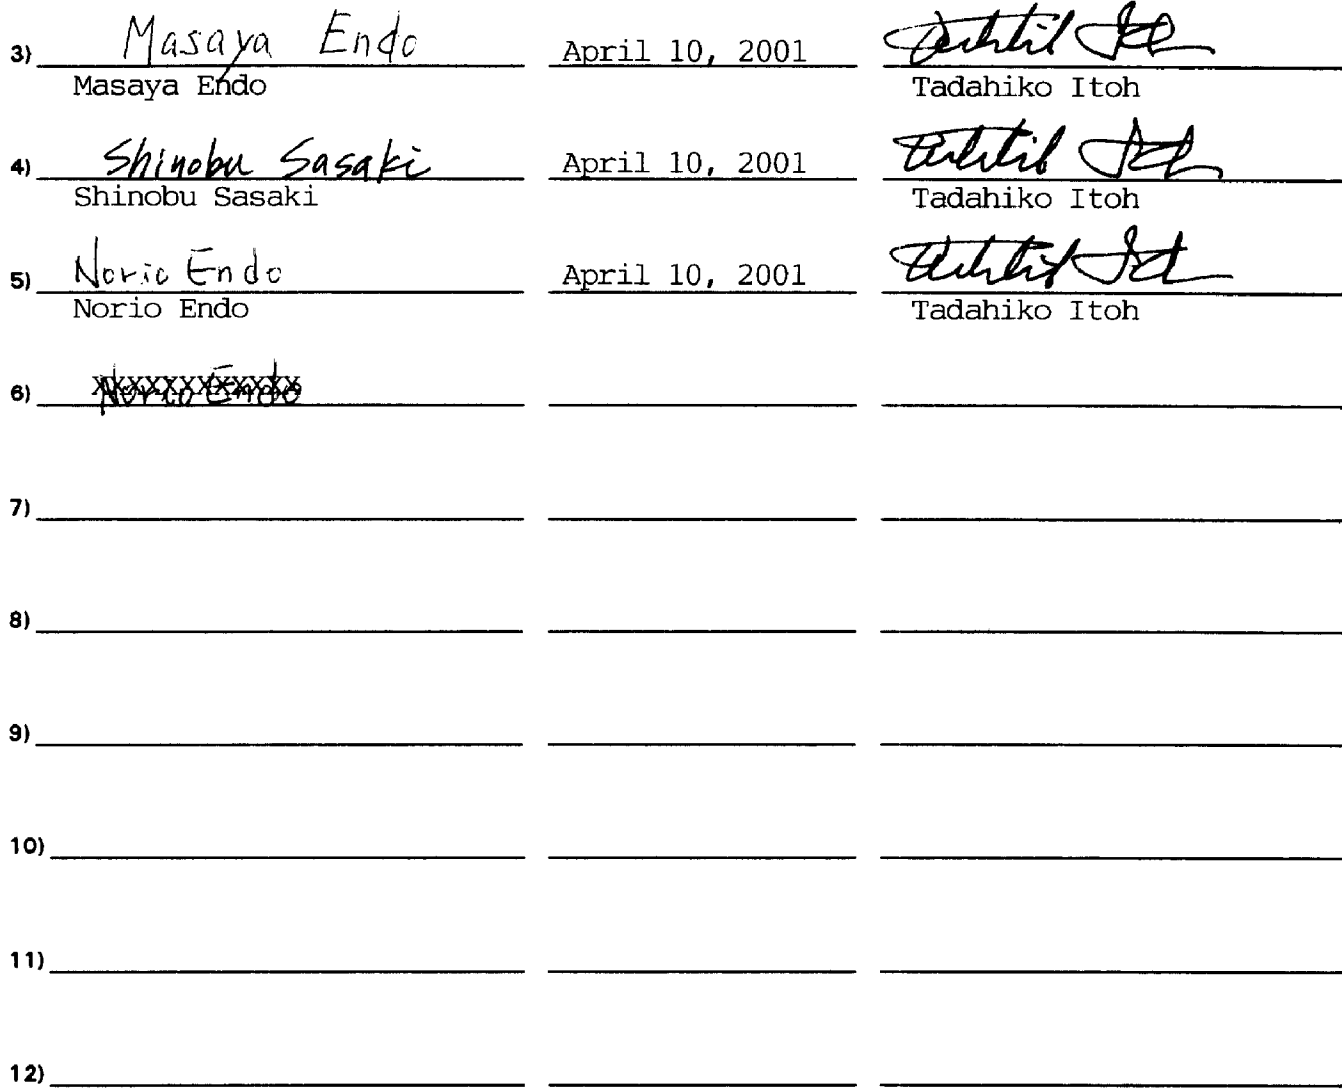 3) Masaya Endo April 10, 2001
Masaya Endo Tadahiko Itoh
4) Shinobu Sasaki April 10, 2001
Shinobu Sasaki Tadahiko Itoh
5) Norio Endo April 10, 2001
Norio Endo Tadahiko Itoh
6) Norio Endo
7)
8)
9)
10)
11)
12)